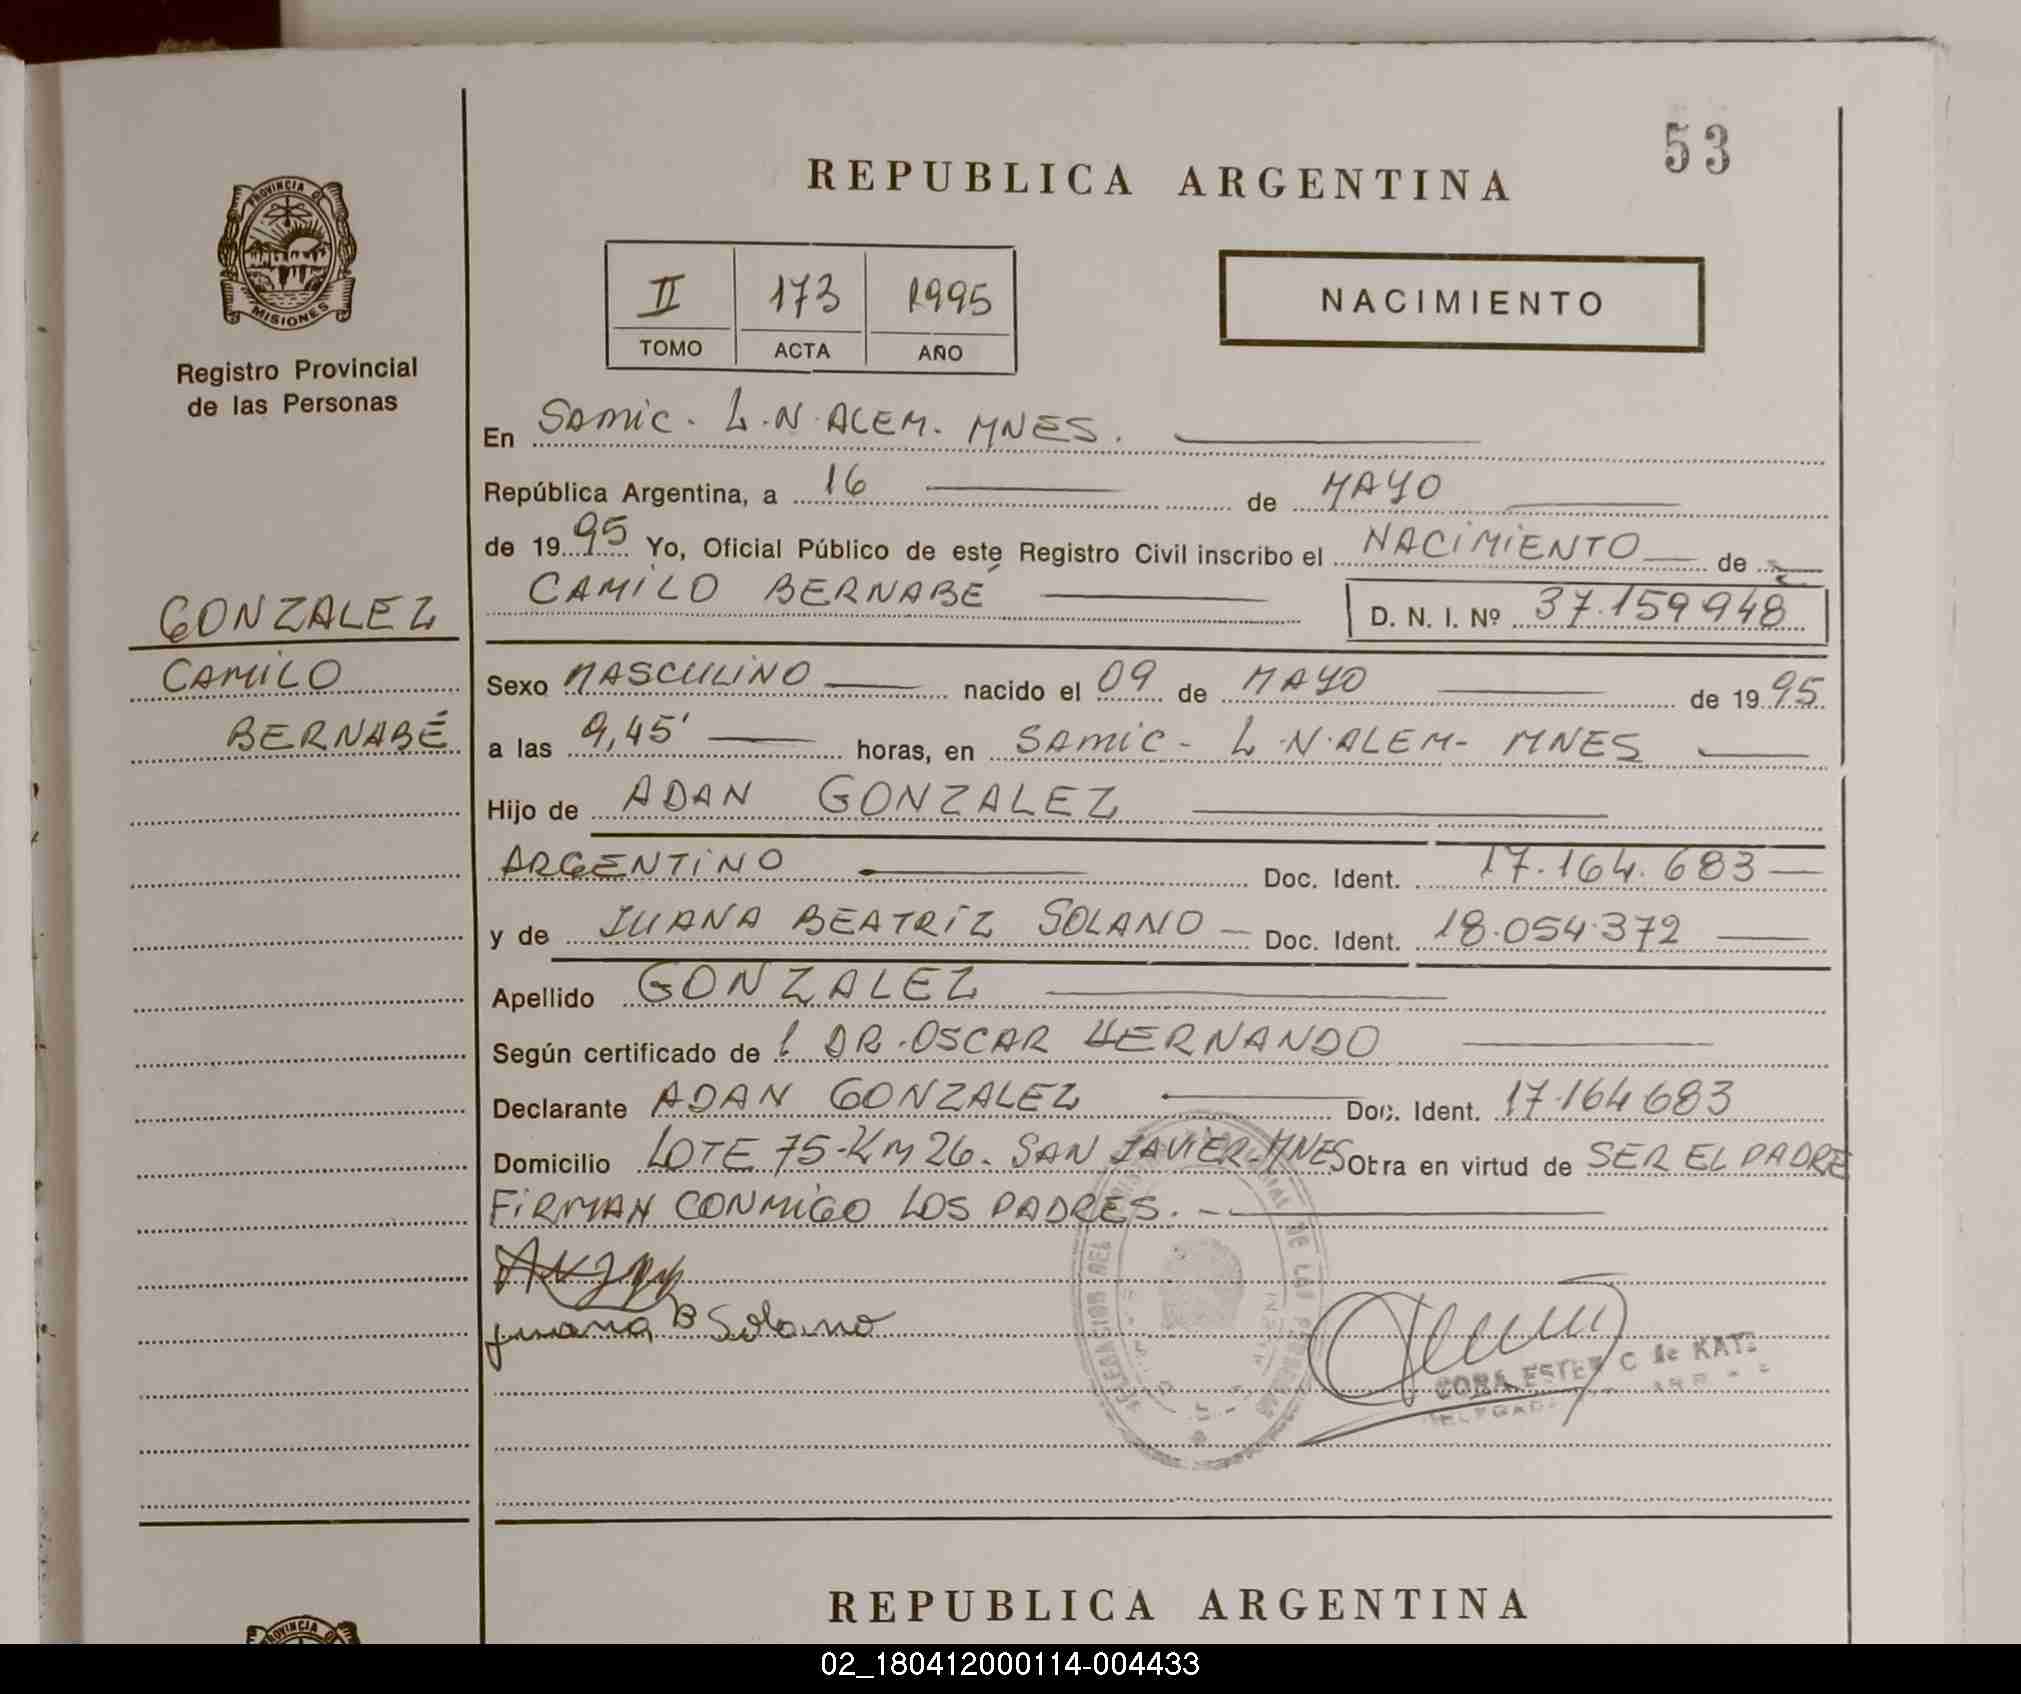 53
REPUBLICA ARGENTINA
PROVINCIA DE
MISIONES
Registro Provincial
de las Personas
II 173 1995
TOMO ACTA AÑO
NACIMIENTO
En SAMIC. L.N.ALEM. MNES.
República Argentina, a 16 de MAYO
de 1995 Yo, Oficial Público de este Registro Civil inscribo el NACIMIENTO de
CAMILO BERNABÉ D. N. I. Nº 37.159948
GONZALEZ
CAMILO
BERNABÉ
Sexo MASCULINO nacido el 09 de MAYO de 1995
a las 9,45' horas, en SAMIC - L.N.ALEM- MNES
Hijo de ADAN GONZALEZ
ARGENTINO Doc. Ident. 17.164.683
y de JUANA BEATRIZ SOLANO Doc. Ident. 18.054.372
Apellido GONZALEZ
Según certificado de l DR. OSCAR HERNANDO
Declarante ADAN GONZALEZ Doc. Ident. 17.164683
Domicilio LOTE 75-KM 26. SAN JAVIER-MNES Obra en virtud de SER EL PADRE
FIRMAN CONMIGO LOS PADRES.
Juana B Solano
CORA ESTER C de KATZ
REPUBLICA ARGENTINA
PROVINCIA DE
02_180412000114-004433